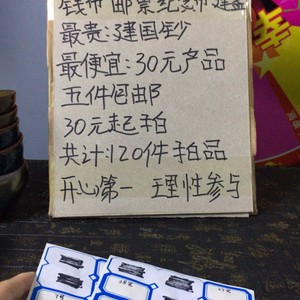 钱币 邮票纪念币
最贵:建国钞
最便宜:30元产品
五件包邮
30元起拍
共计:120件拍品
开心第一 理性参与